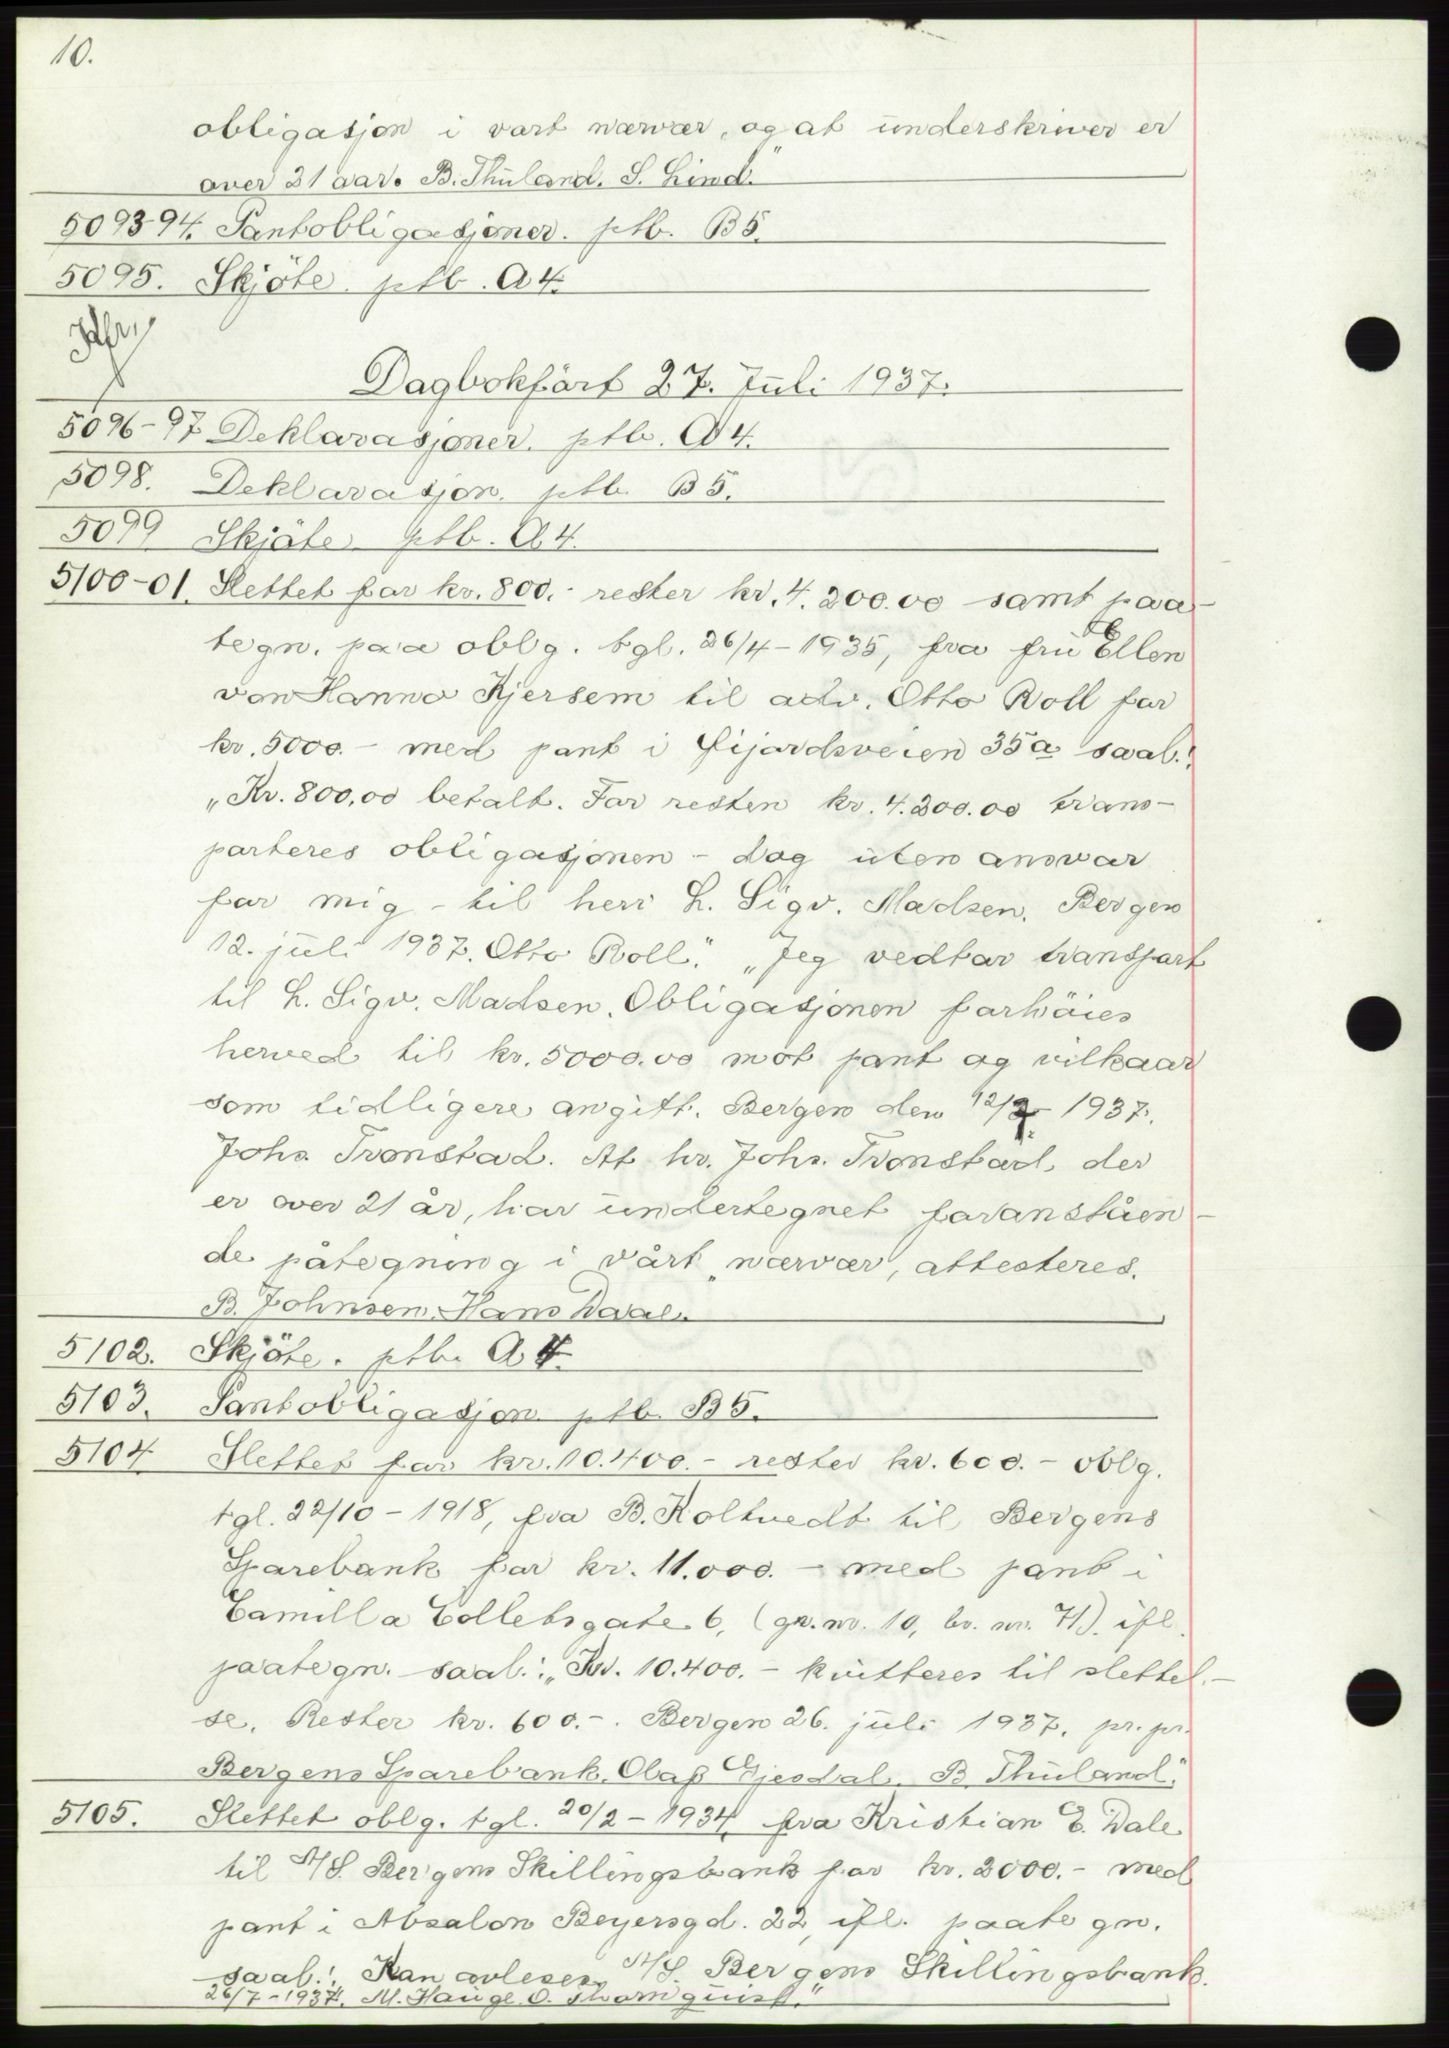 10.
obligasjon i vort nærvær, og at underskriver er
over 21 aar. B. Thuland. S. Lind."
5093-94. Pantobligasjoner. ptb. B5.
5095. Skjöte. ptb. A4.
Dagbokfört 27. Juli 1937.
5096-97 Deklarasjoner. ptb. A4.
5098. Deklarasjon. ptb. B5.
5099 Skjöte. ptb. A4.
5100-01. Slettet for kr. 800.- rester kr. 4.200.00 samt paa-
tegn. paa oblg. tgl. 26/4-1935, fra fru Ellen
von Hanno Kjersem til adv. Otto Roll for
kr. 5000.- med pant i Fijordsveien 35a saal.:
"Kr. 800,00 betalt. For resten kr. 4.200.00 trans-
porteres obligasjonen - dog uten ansvar
for mig - til herr L. Sigv. Madsen. Bergen
12. juli 1937. Otto Roll." "Jeg vedtar transport
til L. Sigv. Madsen. Obligasjonen forhöies
herved til kr. 5000.00 mot pant og vilkaar
som tidligere angitt. Bergen den 12/7-1937.
Johs. Tronstad. At hr. Johs. Tronstad, der
er over 21 år, har undertegnet foranståen-
de påtegning i vårt nærvær, attesteres.
B. Johnsen. Hans Daae.
5102. Skjöte. ptb. A4.
5103. Pantobligasjon ptb. B5.
5104 Slettet for kr. 10.400.- rester kr. 600.- oblg.
tgl. 22/10-1918, fra B. Koltvedt til Bergens
Sparebank for kr. 11.000.- med pant i
Camilla Colletsgate 6, (gr. nr. 10, br. nr. 71). ifl.
paategn. saal.: "Kr. 10.400.- kvitteres til slettel-
se. Rester kr. 600.-. Bergen 26. juli 1937. pr. pr.
Bergens Sparebank. Olaf Gjesdal. B. Thuland."
5105. Slettet oblg. tgl. 20/2-1934, fra Kristian E. Dale
til A/S. Bergens Skillingsbank for kr. 2000.- med
pant i Absalon Beyersgd. 22, ifl. paategn.
saal.: Kan avleses. A/S. Bergens Skillingsbank.
26/7-1937. M. Hauge. O. Thornquist."